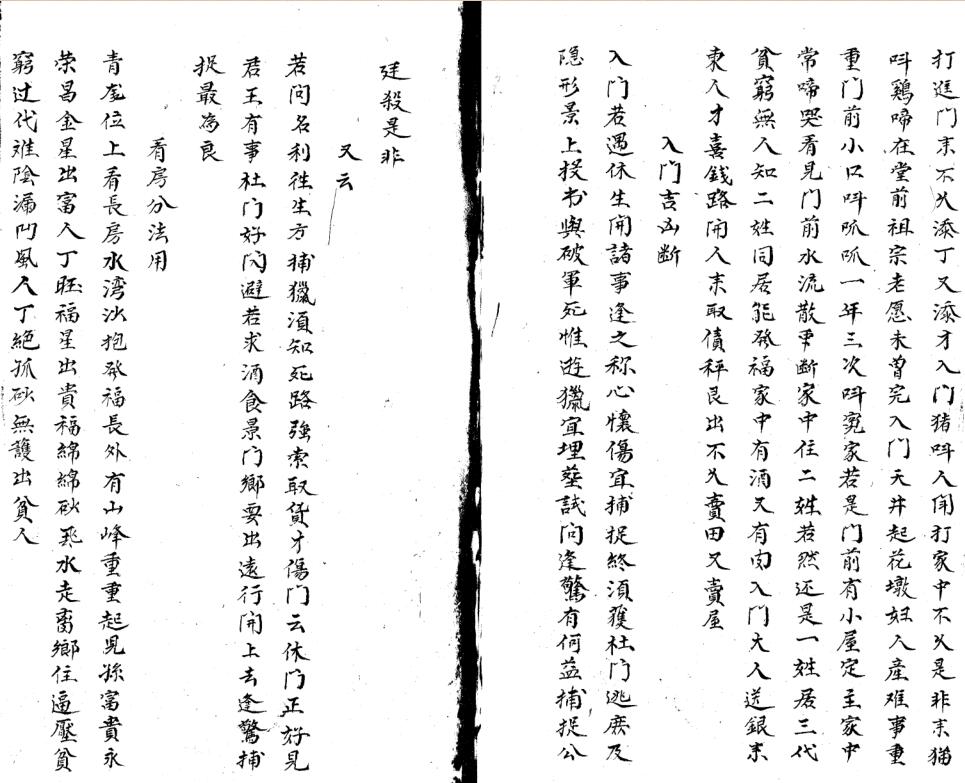 打進门末不久添丁又添才入门猪呌人伟打家中不久是非末猫
呌鷄啼在堂前祖宗老愿未曽完入门天井起花墩妇人產难事重
重门前小口呌呱呱一年三次呌寃家若是门前有小屋定主家中
常啼哭看見门前水流散事断家中住二姓若然还是一姓居三代
貧窮無人知二姓同居能發福家中有酒又有肉入门大人送銀末
東人才喜錢路開人末取債秤艮出不久賣田又賣屋
入门吉凶断
入门若遇休生開諸事逢之称心懐傷宜捕捉終須獲杜门逃庶及
隐形景上投书與破軍死惟逰獵宜埋塟試问逢驚有何益捕捉公
廷殺是非
又云
若问名利徃生方捕獵須知死路強索取貨才傷门云休门正好見
君王有事杜门好閃避若求酒食景门鄉要出遠行開上去逢驚捕
捉最為良
看房分法用
青龙位上看長房水湾沙抱發福長外有山峰重重起児孫富貴永
荣昌金星出富人丁旺福星出貴福綿綿砂飛水走离鄉住逼壓貧
窮过代誰陰漏凹風人丁絕孤砂無護出貧人